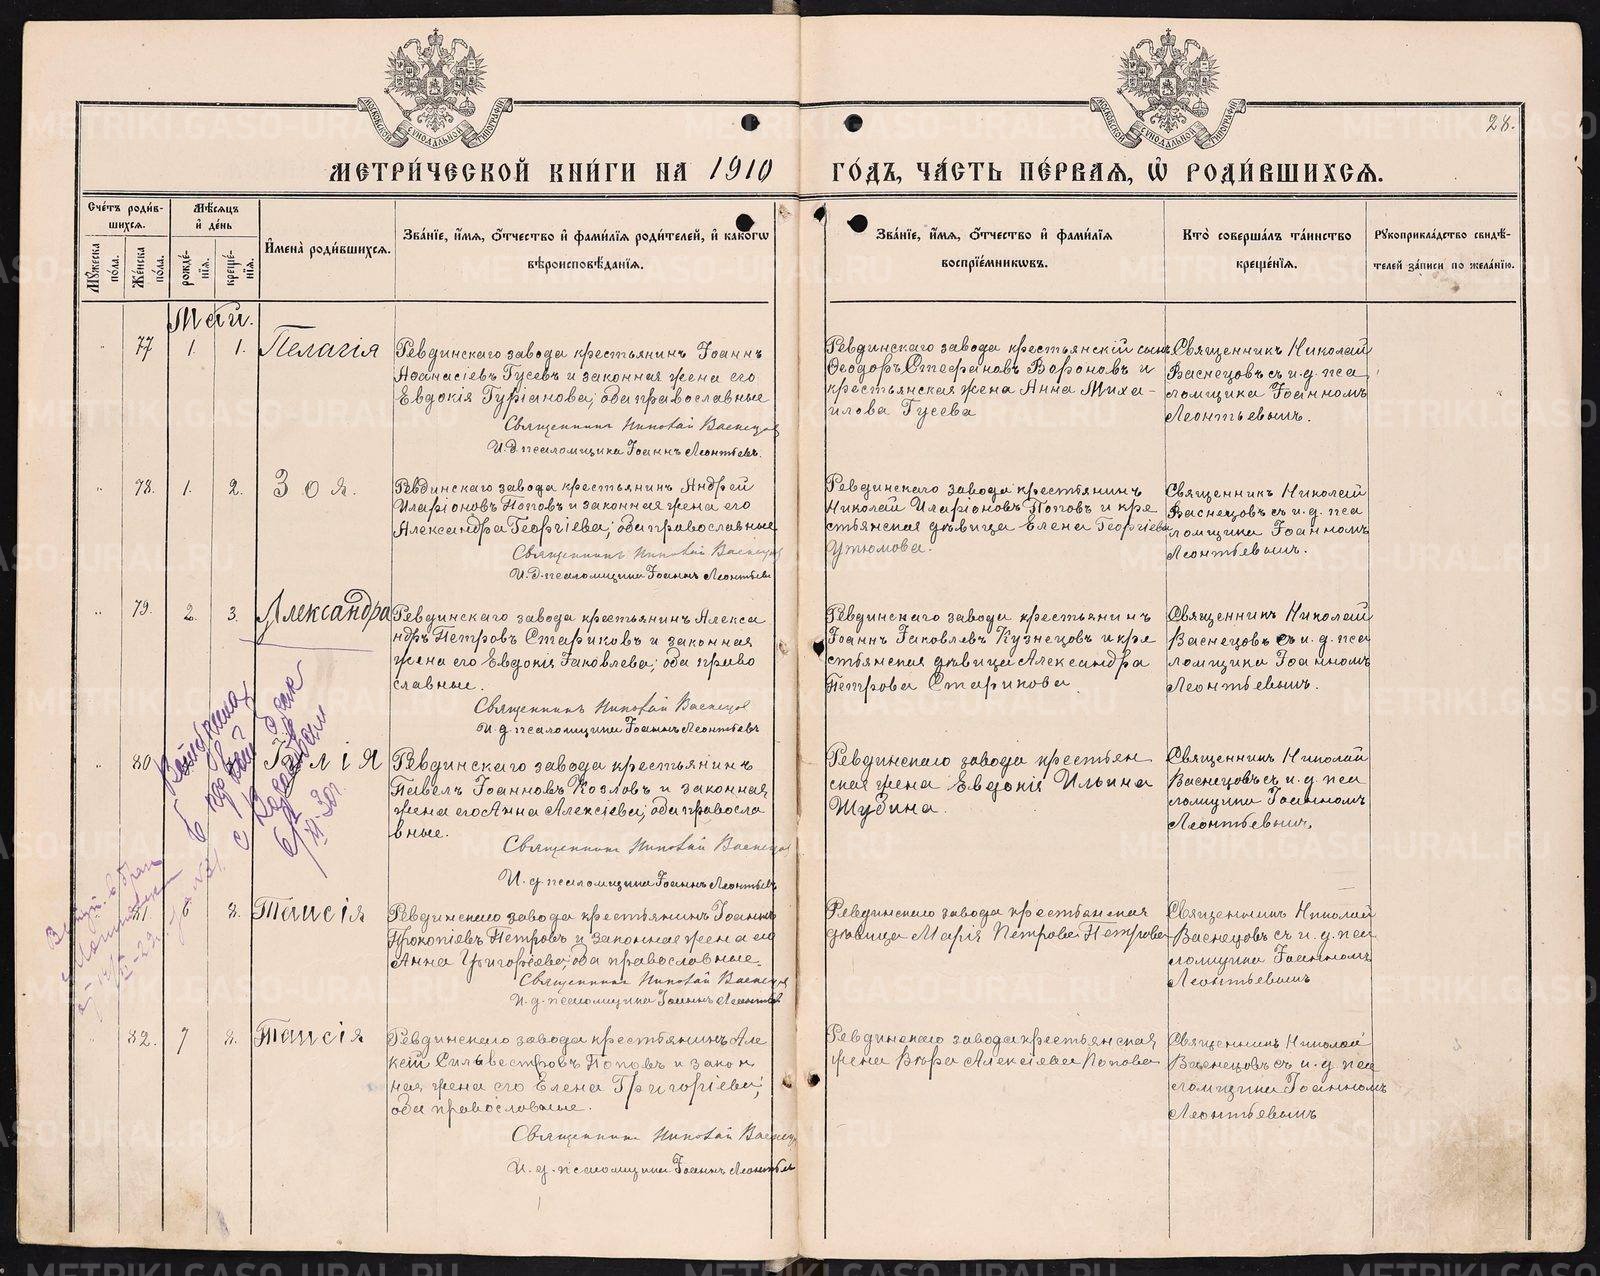 МОСКОВСКОЙ СѴНОДАЛЬНОЙ ТИПОГРАФІИ
МОСКОВСКОЙ СѴНОДАЛЬНОЙ ТИПОГРАФІИ
28.
МЕТРИ́ЧЕСКОЙ КНИ́ГИ НА 1910
ГО́ДЪ, ЧА́СТЬ ПЕ́РВАЯ, Ѡ РОДИ́ВШИХСЯ.
Сче́тъ роди́в-
шихся.
Мѣ́сяцъ
и҆ де́нь
Мꙋ́жеска
по́ла.
Же́нска
по́ла.
рожде́-
нїя.
креще́-
нїя.
И҆мена̀ роди́вшихся.
Зва́нїе, и҆́мя, ѻ҆́тчество и҆ фами́лїя роди́телей, и҆ како́гѡ
вѣроисповѣ́данїя.
Зва́нїе, и҆́мя, ѻ҆́тчество и҆ фами́лїя
воспрїе́мникѡвъ.
Кто̀ соверша́лъ та́инство
креще́нїя.
Рꙋкоприкла́дство свидѣ́-
телей за́писи по жела́нїю.
Май.
77 1. 1. Пелагія
Ревдинскаго завода крестьянинъ Іоаннъ
Аѳанасіевъ Гусевъ и законная жена его
Евдокія Гуріанова, оба православные
Священникъ Николай Васнецов
И.д. псаломщика Іоаннъ Леонтьевъ.
Ревдинскаго завода крестьянскій сынъ
Ѳеодоръ Стефановъ Вороновъ и
крестьянская жена Анна Миха-
илова Гусева
Священникъ Николай
Васнецовъ съ и.д. пса
ломщика Іоанномъ
Леонтьевымъ.
78. 1. 2. Зоя.
Ревдинскаго завода крестьянинъ Андрей
Иларіоновъ Поповъ и законная жена его
Александра Георгіева; оба православные
Священникъ Николай Васнецов
И.д. псаломщика Іоаннъ Леонтьевъ
Ревдинскаго завода крестьянинъ
Николай Иларіоновъ Поповъ и кре
стьянская дѣвица Елена Георгіева
Утюмова.
Священникъ Николай
Васнецовъ съ и.д. пса
ломщика Іоанномъ
Леонтьевымъ.
79. 2. 3. Александра
Ревдинскаго завода крестьянинъ Алекса
ндръ Петровъ Стариковъ и законная
жена его Евдокія Іаковлева; оба право
славные.
Священникъ Николай Васнецов
И.д. псаломщика Іоаннъ Леонтьевъ
Ревдинскаго завода крестьянинъ
Іоаннъ Іаковлевъ Кузнецовъ и кре
стьянская дѣвица Александра
Петрова Старикова
Священникъ Николай
Васнецовъ съ и.д. пса
ломщика Іоанномъ
Леонтьевымъ.
80
Ревдинскаго завода крестьянинъ
Павелъ Іоанновъ Козловъ и законная
жена его Анна Алексіева; оба правосла
вные.
Священникъ Николай Васнецов
И.д. псаломщика Іоаннъ Леонтьевъ
Ревдинскаго завода крестьян
ская жена Евдокія Ильина
Шубина.
Священникъ Николай
Васнецовъ съ и.д. пса
ломщика Іоанномъ
Леонтьевымъ,
81 6 8. Таисія
Ревдинскаго завода крестьянинъ Іоаннъ
Прокопіевъ Петровъ и законная жена его
Анна Григоріева; оба православные.
Священникъ Николай Васнецов
И.д. псаломщика Іоаннъ Леонтьев
Ревдинскаго завода крестьянская
дѣвица Марія Петрова Петрова
Священникъ Николай
Васнецовъ съ и.д. пса
ломщика Іоанномъ
Леонтьевымъ
82. 7 8. Таисія
Ревдинскаго завода крестьянинъ Але
ксѣй Сильвестровъ Поповъ и закон
ная жена его Елена Григоріева;
оба православные.
Священникъ Николай Васнец
И.д. псаломщика Іоаннъ Леонтьев
Ревдинскаго завода крестьянская
жена Вѣра Алексіева Попова
Священникъ Николай
Васнецовъ съ и.д. пса
ломщика Іоанномъ
Леонтьевымъ
METRIKI.GASO-URAL.RU